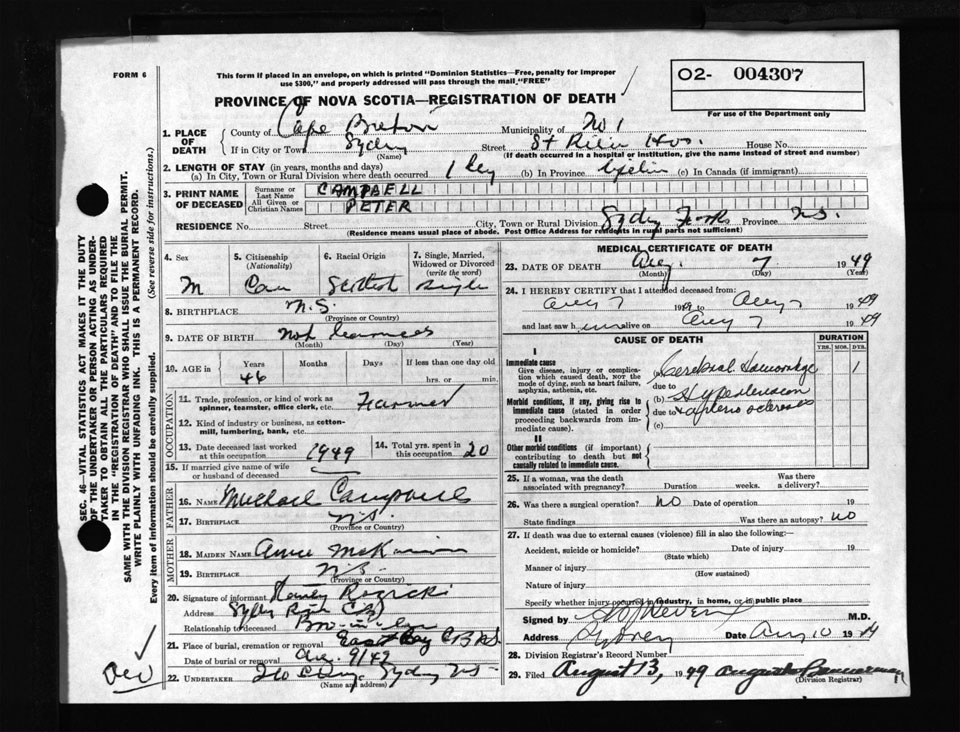 FORM 6
This form if placed in an envelope, on which is printed "Dominion Statistics—Free, penalty for improper use $300," and properly addressed will pass through the mail "FREE"
O2- 004307
For use of the Department only
PROVINCE OF NOVA SCOTIA—REGISTRATION OF DEATH
1. PLACE OF DEATH
County of Cape Breton Municipality of No 1
If in City or Town Sydney (Name) Street St Hos. House No.
(If death occurred in a hospital or institution, give the name instead of street and number)
2. LENGTH OF STAY (in years, months and days)
(a) In City, Town or Rural Division where death occurred 1 Day (b) In Province Lifetime (c) In Canada (if immigrant)
3. PRINT NAME OF DECEASED
Surname or Last Name CAMPBELL
All Given or Christian Names PETER
RESIDENCE No. Street City, Town or Rural Division Sydney Forks Province N.S.
(Residence means usual place of abode. Post Office Address for residents in rural parts not sufficient)
4. Sex M
5. Citizenship (Nationality) Can
6. Racial Origin Scottish
7. Single, Married, Widowed or Divorced (write the word) Single
8. BIRTHPLACE N.S. (Province or Country)
9. DATE OF BIRTH Not (Month) (Day) (Year)
10. AGE in Years 46 Months Days If less than one day old hrs. or min.
OCCUPATION
11. Trade, profession, or kind of work as spinner, teamster, office clerk, etc. Farmer
12. Kind of industry or business, as cotton-mill, lumbering, bank, etc.
13. Date deceased last worked at this occupation 1949
14. Total yrs. spent in this occupation 20
15. If married give name of wife or husband of deceased
FATHER
16. NAME Michael Campbell
17. BIRTHPLACE N.S. (Province or Country)
MOTHER
18. MAIDEN NAME Annie McKinnon
19. BIRTHPLACE N.S. (Province or Country)
20. Signature of informant Stanley
Address Sydney C.B.
Relationship to deceased Bro-in-law
21. Place of burial, cremation or removal East Bay C B N S
Date of burial or removal Aug. 9/49
22. UNDERTAKER Sydney NS (Name and address)
MEDICAL CERTIFICATE OF DEATH
23. DATE OF DEATH Aug. (Month) 7 (Day) 1949 (Year)
24. I HEREBY CERTIFY that I attended deceased from:
Aug 7 1949 to Aug 7 1949
and last saw him alive on Aug 7 1949
CAUSE OF DEATH
DURATION
YRS. MOS. DYS.
I
Immediate cause
Give disease, injury or complication which caused death, NOT the mode of dying, such as heart failure, asphyxia, asthenia, etc.
(a) Cerebral Hemorrhage 1
due to
Morbid conditions, if any, giving rise to immediate cause (stated in order proceeding backwards from immediate cause).
(b) Hypertension
due to arterio sclerosis
(c)
II
Other morbid conditions (if important) contributing to death but not causally related to immediate cause.
25. If a woman, was the death associated with pregnancy? Duration weeks. Was there a delivery?
26. Was there a surgical operation? no Date of operation 19
State findings Was there an autopsy? no
27. If death was due to external causes (violence) fill in also the following:—
Accident, suicide or homicide? (State which) Date of injury 19
Manner of injury (How sustained)
Nature of injury
Specify whether injury occurred in industry, in home, or in public place
Signed by M.D.
Address Sydney Date Aug 10 1949
28. Division Registrar's Record Number
29. Filed August 13, 1949 (Division Registrar)
SEC. 46—VITAL STATISTICS ACT MAKES IT THE DUTY OF THE UNDERTAKER OR PERSON ACTING AS UNDERTAKER TO OBTAIN ALL THE PARTICULARS REQUIRED IN THE "REGISTRATION OF DEATH" AND TO FILE THE SAME WITH THE DIVISION REGISTRAR WHO SHALL ISSUE THE BURIAL PERMIT.
WRITE PLAINLY WITH UNFADING INK. THIS IS A PERMANENT RECORD.
Every item of information should be carefully supplied. (See reverse side for instructions.)